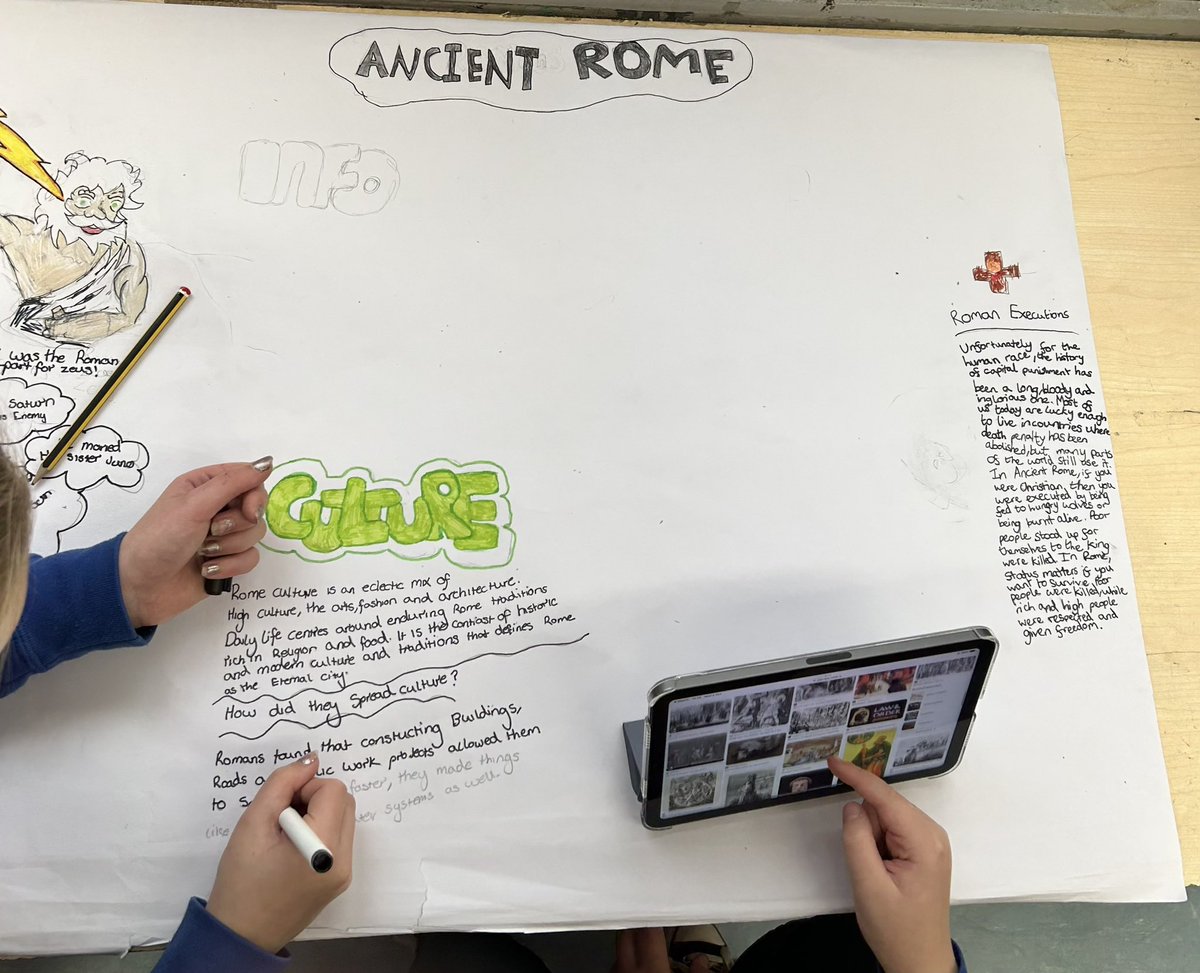 ANCIENT ROME
INFO
was the Roman
part for Zeus!
Saturn
Enemy
married
Sister Juno
CULTURE
Rome culture is an eclectic mix of
High culture, the arts, fashion and architecture.
Daily life centres around enduring Rome traditions
rich in Religon and food. It is the contrast of historic
and modern culture and traditions that defines Rome
as the Eternal city.
How did they Spread culture?
Romans found that constucting Buildings,
Roads work projects allowed them
to faster, they made things
like systems as well.
Roman Executions
Unfortunately for the
human race, the history
of capital punishment has
been a long, bloody and
inglorious one. Most of
us today are lucky enough
to live in countries where
death penalty has been
abolished, but many parts
of the world still use it.
In Ancient Rome, if you
were Christian, then you
were executed by being
fed to hungry wolves or
being burnt alive. Poor
people stood up for
themselves to the King
were killed. In Rome,
status matters if you
want to survive, Poor
people were killed while
rich and high people
were respected and
given freedom.
LAW &
ORDER